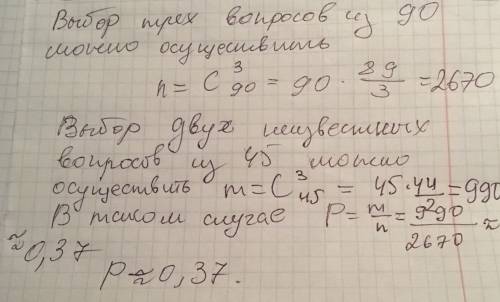 Выбор трех вопросов из 90
можно осуществить
n = C³₉₀ = 90 · 89/3 = 2670
Выбор двух неизвестных
вопросов из 45 можно
осуществить m = C³₄₅ = 45 · 44/2 = 990
В таком случае P = m/n = 990/2670 ≈
≈ 0,37
P ≈ 0,37.